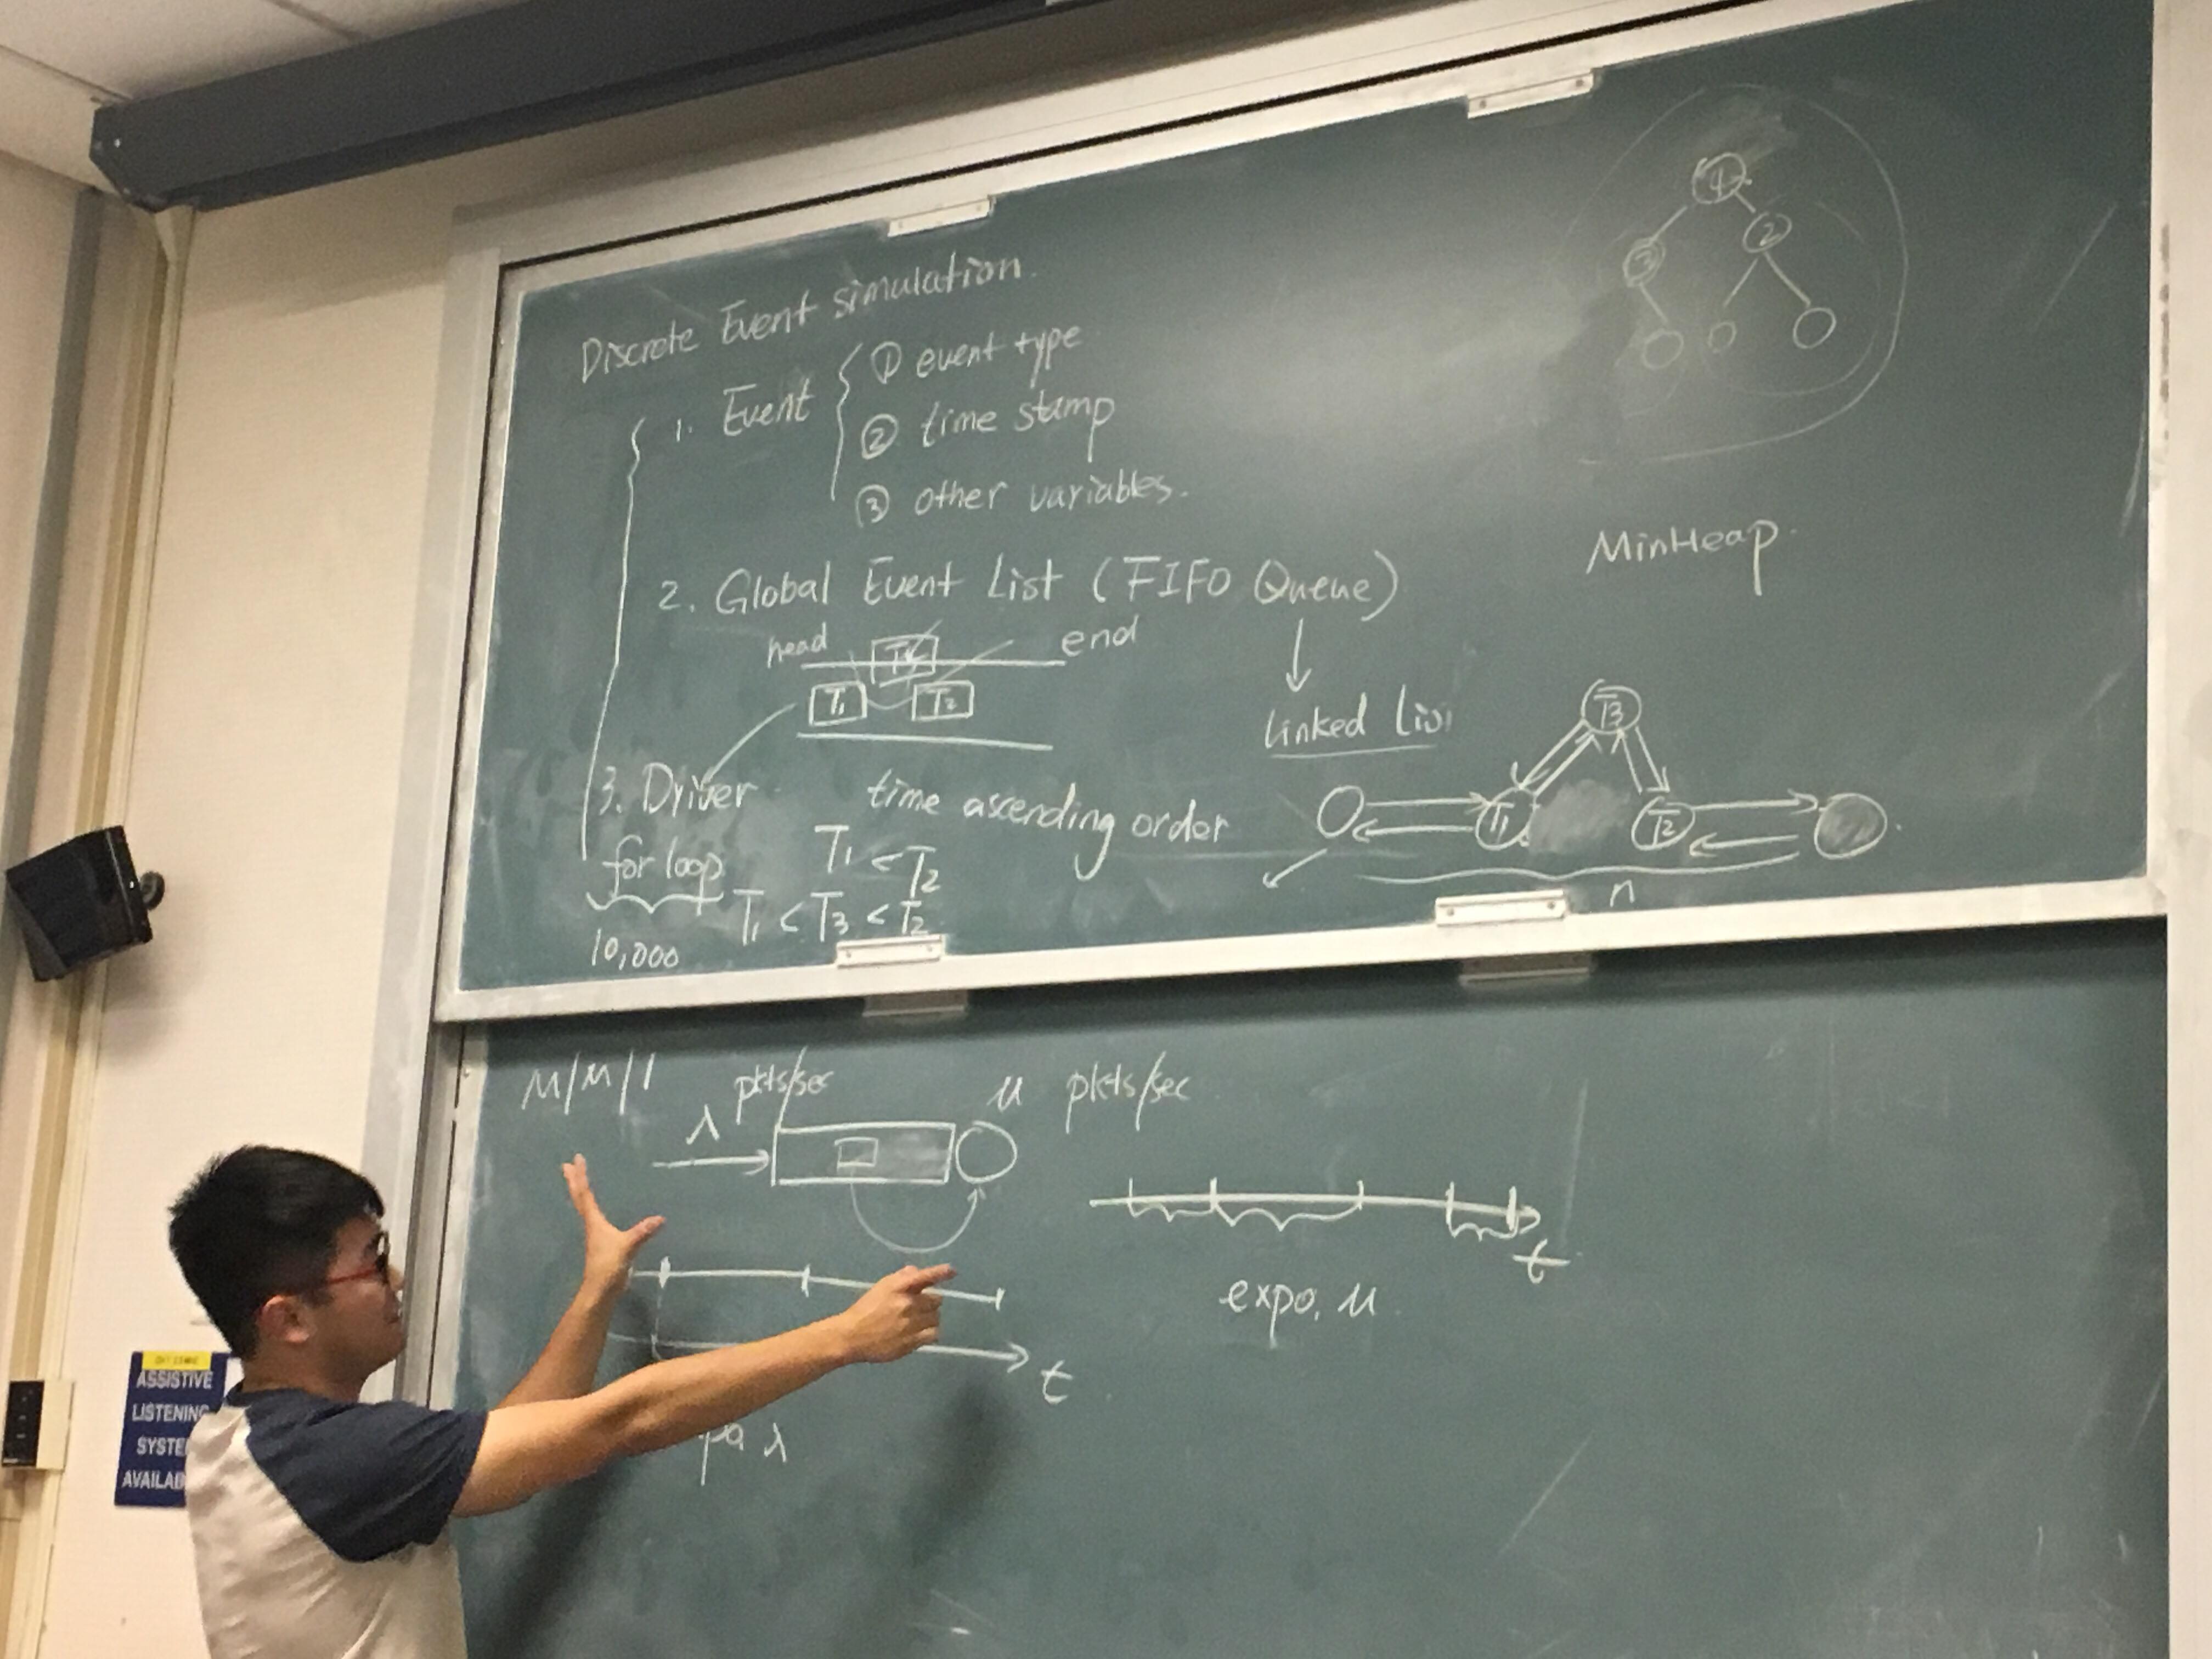 Discrete Event simulation.
1. Event { ① event type
② time stamp
③ other variables.
2. Global Event List (FIFO Queue)
head
end
T1
T2
Linked List
3. Driver
time ascending order
for loop
T1 < T2
T1 < T3 < T2
10,000
2
MinHeap.
T3
T1
T2
n
M/M/1
λ pkts/sec
μ pkts/sec
t
expo, μ
t
λ
ASSISTIVE
LISTENING
SYSTE
AVAILAB